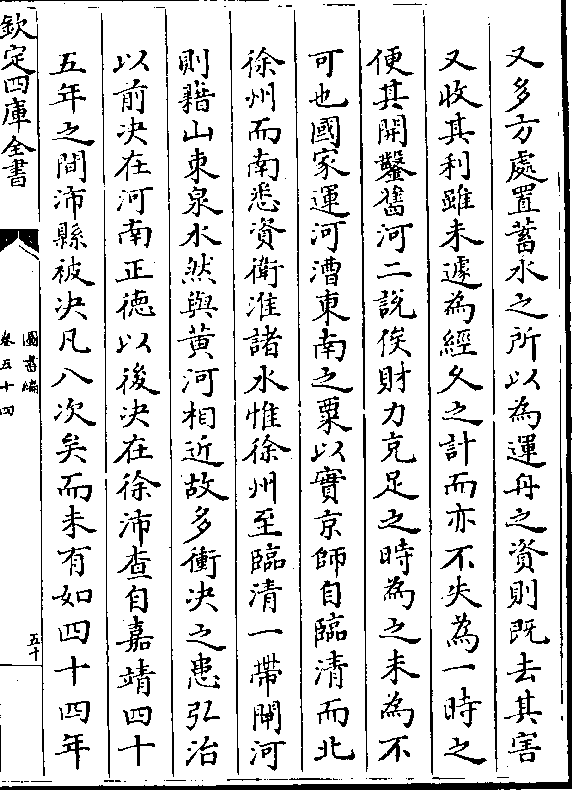 又多方處置蓄水之所以為運舟之資則既去其害
又收其利雖未遽為經久之計而亦不失為一時之
便其開鑿舊河二說俟財力克足之時為之未為不
可也國家運河漕東南之粟以實京師自臨清而北
徐州而南悉資衛淮諸水惟徐州至臨清一帶閘河
則藉山東泉水然與黄河相近故多衝决之患弘治
以前决在河南正德以後决在徐沛查自嘉靖四十
五年之間沛縣被决凡八次矣而未有如四十四年
欽定四庫全書
圖書編
卷五十四
五十